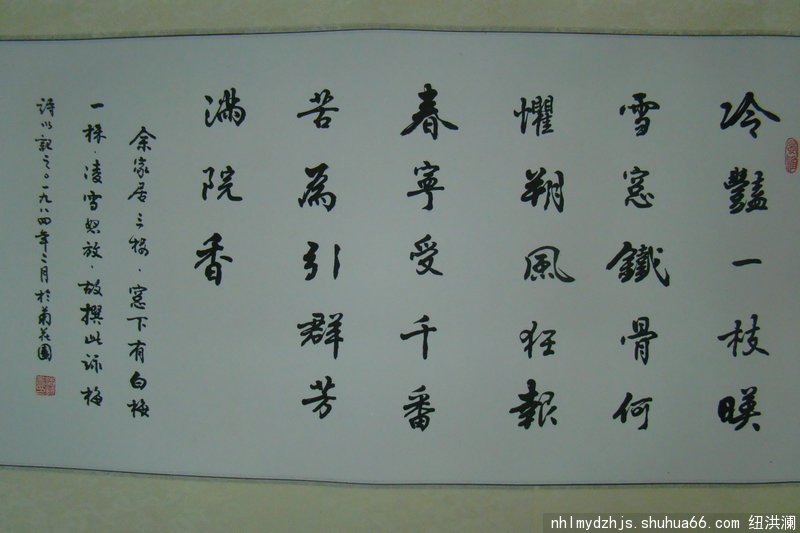 冷豔一枝暎
雪窓鐵骨何
懼朔風狂報
春寧受千番
苦為引群芳
滿院香
余家居三楼．窓下有白梅
一株．凌雪怒放．故撰此詠梅
詩以記之。一九八四年二月於菊花園
nhlmydzhjs.shuhua66.com 纽洪澜